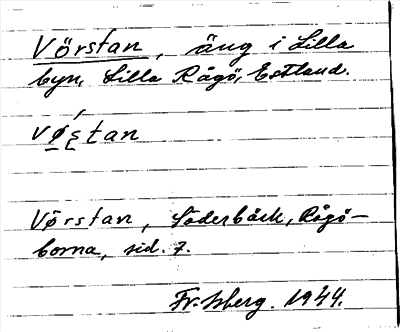 Vörstan, äng i Lilla
byn, Lilla Rågö, Estland.
Vörstan, Söderbäck, Rågö-
borna, sid. 7.
Fr. Isberg. 1944.